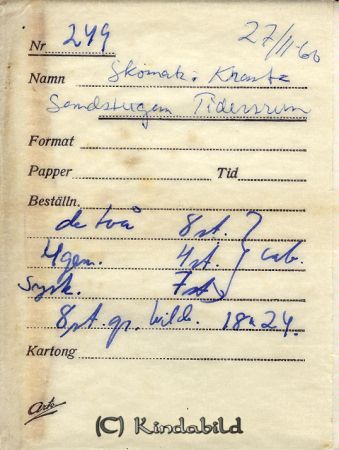 27/11-66
Nr 249
Namn Skomak. Krantz
Sandstugan Tidersrum
Format
Papper Tid
Beställn.
de två 8 st.
4 gem. 4 st. cab.
Sysk. 7 st
8 st. gr. bild. 18x24.
Kartong
(C) Kindabild